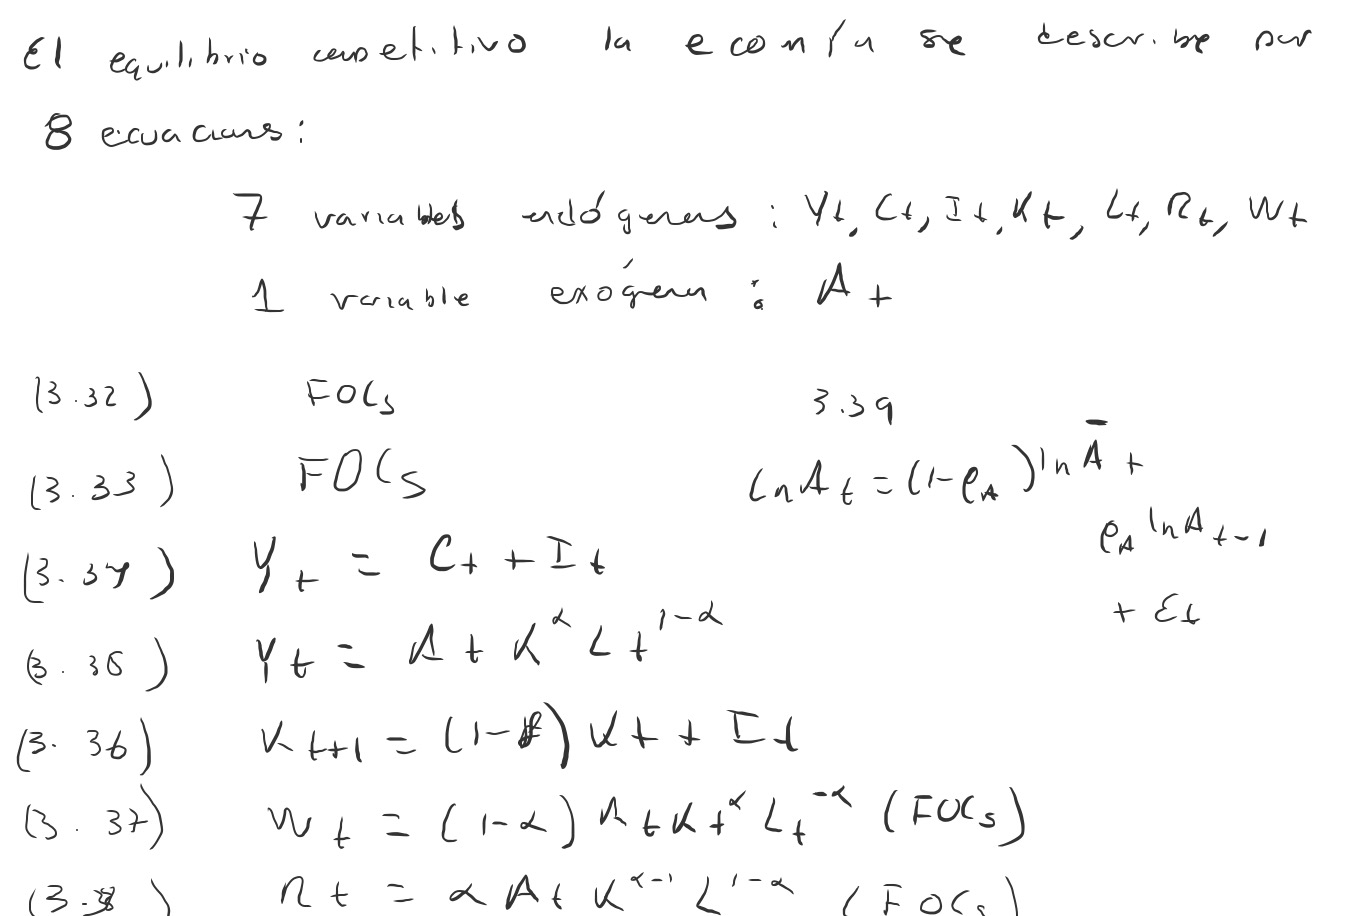 El equilibrio competitivo la econ/a se describe por
8 ecuaciones:
7 variables endógenas : Yt, Ct, It, Kt, Lt, Rt, Wt
1 variable exógena : At
(3.32) FOCs
(3.33) FOCs
(3.34) Yt = Ct + It
(3.35) Yt = At K^α Lt^1-α
(3.36) Kt+1 = (1-δ) Kt + It
(3.37) Wt = (1-α) At Kt^α Lt^-α (FOCs)
(3.38) Rt = α At K^α-1 L^1-α (FOCs)
3.39
ln At = (1-ρA) ln Ā +
ρA ln At-1
+ εt